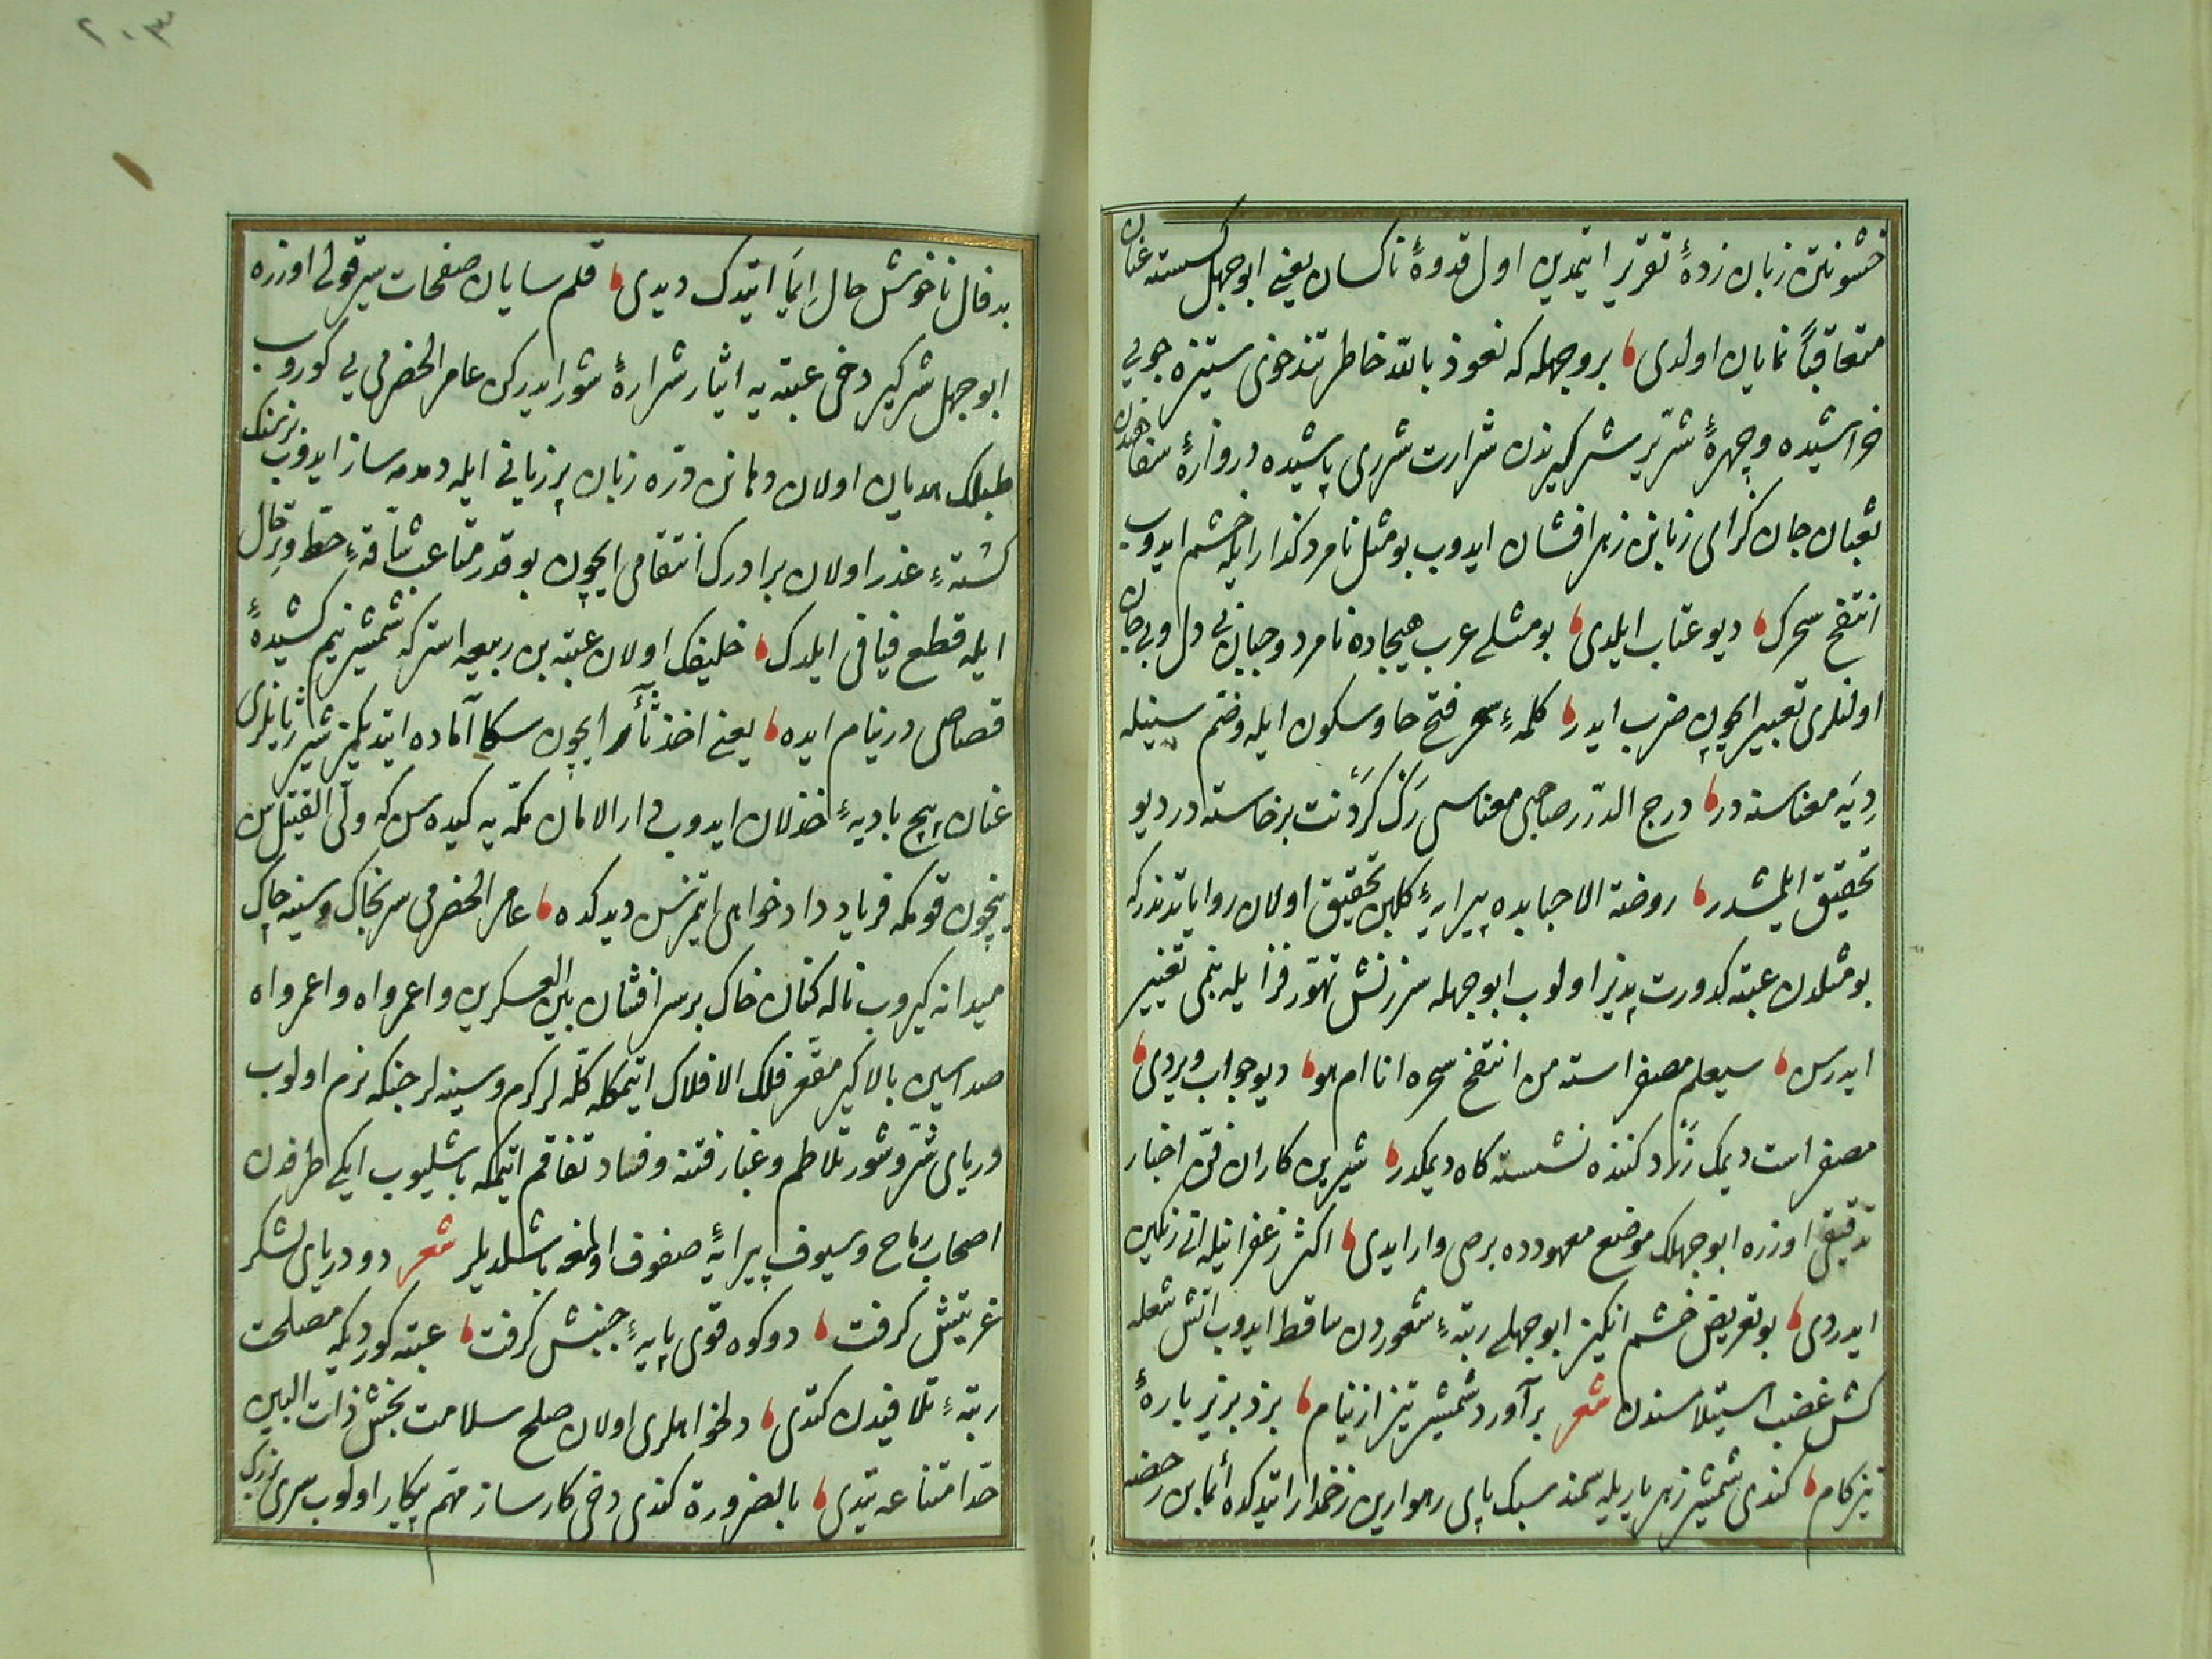 خشونتن زبان زدهٔ تقرير ايتمدين اول قدوهٔ ناكسان يعنى ابوجهل كسسته عنان
متعاقباً نمايان اولدى بر وجهله كه نعوذ بالله خاطر تندخوى ستيزه جويى
خراشيده وچهرهٔ شرّير شركيرندن شرارت شررى پاشيده دروازهٔ
ثعبان جان كزاى زبانن زهر افشان ايدوب بو مثل نامرد كذار ايله خشم ايدوب
انتفخ سحرك ديو عتاب ايلدى بو مثلى عرب هيجاده نامرد وجبان بى دل وبى جان
اولنلرى تعبير ايچون ضرب ايدر كلمهٔ سحر فتح حا وسكون ايله وضم سينيله
ريه معناسنه در درج الدرر صاحبى معناسى رك كردنت برخاسته در ديو
تحقيق ايلمشدر روضة الاحبابده پيرايهٔ كلبن تحقيق اولان رواياتدندركه
بو مثلدن عتبه كدورت پذير اولوب ابوجهله سرزنش تهوّر فزا ايله بنمى تعيير
ايدرسن سيعلم مصفر استه من انتفخ سحره انا ام هو ديو جواب ويردى
مصفر است ديمك زرد كننده نشسته كاه ديمكدر شيرين كاران فنّ اخبار
تدقيقى اوزره ابوجهلك موضع معهودده برصى وار ايدى اكثر زعفرانيله انى رنكين
ايدردى بو تعريض خشم انكيز ابوجهلى رتبهٔ شعوردن ساقط ايدوب آتش شعله
كش غضب استيلاسندن شعر برآورد شمشير تيز از نيام بزد بر بر بارهٔ
تيزكام كندى شمشير زهر باريله سمند سبك پاى رهوارين زخمدار ايتدكده أيما بن رحضه
٢٠٣
بدفال ناخوش حال ايما ايتدك ديدى قلم سايان صفحات سير قولى اوزره
ابوجهل شركير دخى عتبه يه ايثار شرارهٔ شور ايدركن عامر الحضرمى يى كوروب
طبلك هديان اولان دهانن درّه زبان پر زيانى ايله دمدمه ساز ايدوب
كشتهٔ غدر اولان برادرك انتقامى ايچون بو قدر متاعب شاقهٔ حط وترحال
ايله قطع فيافى ايلدك خليفك اولان عتبه بن ربيعه استركه شمشير نيم كشيدهٔ
قصاص در نيام ايده يعنى اخذ ثأر ايچون سكا آماده ايتديكمز شير ژيانلرى
عنان پيچ باديهٔ خذلان ايدوب دار الامان مكّه يه كيده سن كه ولىّ القتيل سن
نيچون قومكه فرياد دادخواهى ايتمزسن ديدكده عامر الحضرمى سر بخاك وسينه چاك
ميدانه كيروب ناله كنان خاك بر سر افشان بين العسكرين واعمرواه واعمرواه
صداسين بالاكير مقعر فلك الافلاك ايتمكله كلّه لر كرم وسينه لر جنكه نرم اولوب
درياى شرّ وشور تلاطم وغبار فتنه وفساد تفاقم ايتمكه باشليوب ايكى طرفدن
اصحاب رماح وسيوف پيرايهٔ صفوف اولمغه باشلديلر شعر دو درياى لشكر
غريتش كرفت دو كوه قوى پايهٔ جنبش كرفت عتبه كورديكه مصلحت
رتبهٔ تلافيدن كتدى دلخواهلرى اولان صلح سلامت بخش ذات البين
حدّ امتناعه يتدى بالضرورة كندى دخى كارساز مهم پيكار اولوب سرى بزرك